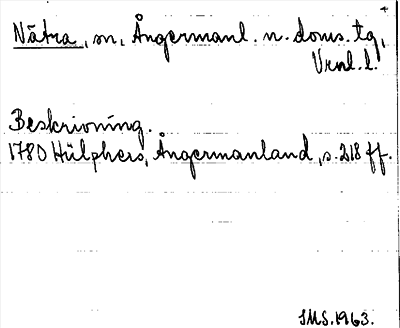 Nätra, sn, Ångermanl. n. doms. tg,
Vrnl. l.
Beskrivning.
1780 Hülphers, Ångermanland, s. 218 ff.
SMS. 1963.